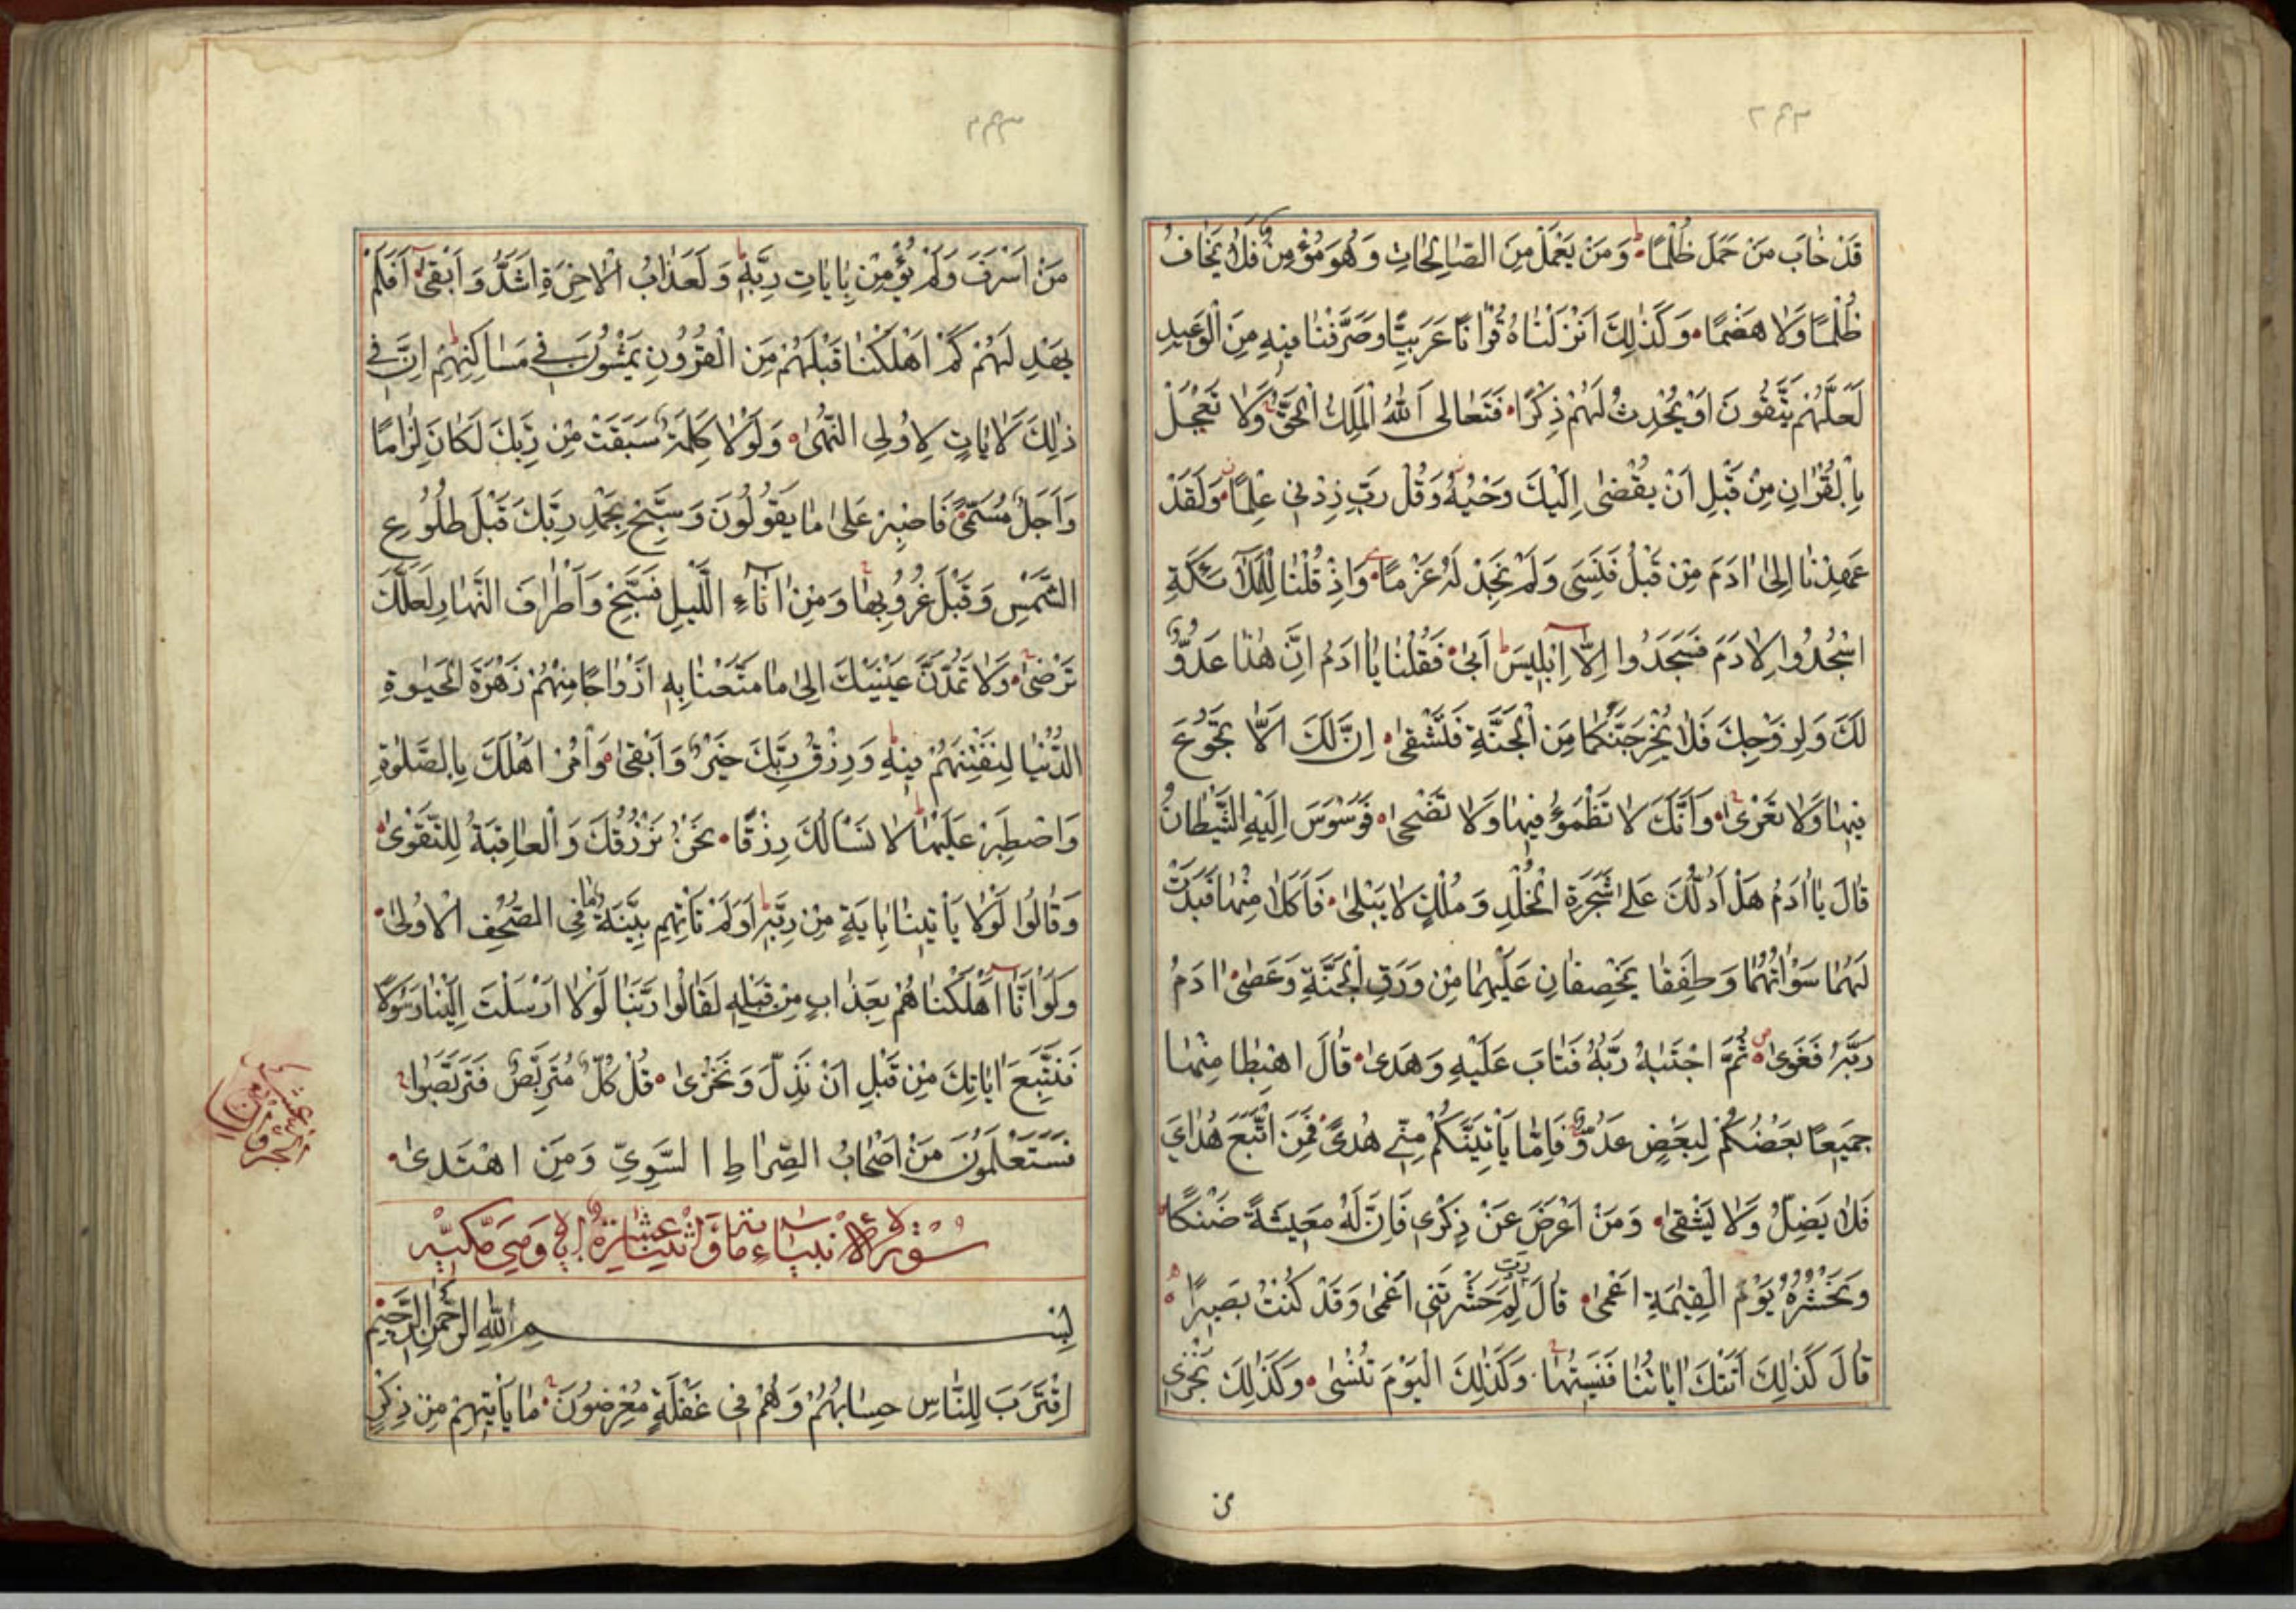 قَدْ خَابَ مَنْ حَمَلَ ظُلْمًا وَمَنْ يَعْمَلْ مِنَ الصَّالِحَاتِ وَهُوَ مُؤْمِنٌ فَلَا يَخَافُ
ظُلْمًا وَلَا هَضْمًا وَكَذٰلِكَ اَنْزَلْنَاهُ قُرْاٰنًا عَرَبِيًّا وَصَرَّفْنَا فِيهِ مِنَ الْوَعِيدِ
لَعَلَّهُمْ يَتَّقُونَ اَوْ يُحْدِثُ لَهُمْ ذِكْرًا فَتَعَالَى اللّٰهُ الْمَلِكُ الْحَقُّ وَلَا تَعْجَلْ
بِالْقُرْاٰنِ مِنْ قَبْلِ اَنْ يُقْضٰى اِلَيْكَ وَحْيُهُ وَقُلْ رَبِّ زِدْنِي عِلْمًا وَلَقَدْ
عَهِدْنَا اِلٰى اٰدَمَ مِنْ قَبْلُ فَنَسِيَ وَلَمْ نَجِدْ لَهُ عَزْمًا وَاِذْ قُلْنَا لِلْمَلٰٓئِكَةِ
اسْجُدُوا لِاٰدَمَ فَسَجَدُوا اِلَّا اِبْلِيسَ اَبٰى فَقُلْنَا يَا اٰدَمُ اِنَّ هٰذَا عَدُوٌّ
لَكَ وَلِزَوْجِكَ فَلَا يُخْرِجَنَّكُمَا مِنَ الْجَنَّةِ فَتَشْقٰى اِنَّ لَكَ اَلَّا تَجُوعَ
فِيهَا وَلَا تَعْرٰى وَاَنَّكَ لَا تَظْمَؤُ فِيهَا وَلَا تَضْحٰى فَوَسْوَسَ اِلَيْهِ الشَّيْطَانُ
قَالَ يَا اٰدَمُ هَلْ اَدُلُّكَ عَلٰى شَجَرَةِ الْخُلْدِ وَمُلْكٍ لَا يَبْلٰى فَاَكَلَا مِنْهَا فَبَدَتْ
لَهُمَا سَوْاٰتُهُمَا وَطَفِقَا يَخْصِفَانِ عَلَيْهِمَا مِنْ وَرَقِ الْجَنَّةِ وَعَصٰى اٰدَمُ
رَبَّهُ فَغَوٰى ثُمَّ اجْتَبٰهُ رَبُّهُ فَتَابَ عَلَيْهِ وَهَدٰى قَالَ اهْبِطَا مِنْهَا
جَمِيعًا بَعْضُكُمْ لِبَعْضٍ عَدُوٌّ فَاِمَّا يَأْتِيَنَّكُمْ مِنِّي هُدًى فَمَنِ اتَّبَعَ هُدَايَ
فَلَا يَضِلُّ وَلَا يَشْقٰى وَمَنْ اَعْرَضَ عَنْ ذِكْرِي فَاِنَّ لَهُ مَعِيشَةً ضَنْكًا
وَنَحْشُرُهُ يَوْمَ الْقِيٰمَةِ اَعْمٰى قَالَ رَبِّ لِمَ حَشَرْتَنِي اَعْمٰى وَقَدْ كُنْتُ بَصِيرًا
قَالَ كَذٰلِكَ اَتَتْكَ اٰيَاتُنَا فَنَسِيتَهَا وَكَذٰلِكَ الْيَوْمَ تُنْسٰى وَكَذٰلِكَ نَجْزِي
مَنْ اَسْرَفَ وَلَمْ يُؤْمِنْ بِاٰيَاتِ رَبِّهِ وَلَعَذَابُ الْاٰخِرَةِ اَشَدُّ وَاَبْقٰى اَفَلَمْ
يَهْدِ لَهُمْ كَمْ اَهْلَكْنَا قَبْلَهُمْ مِنَ الْقُرُونِ يَمْشُونَ فِي مَسَاكِنِهِمْ اِنَّ فِي
ذٰلِكَ لَاٰيَاتٍ لِاُولِي النُّهٰى وَلَوْلَا كَلِمَةٌ سَبَقَتْ مِنْ رَبِّكَ لَكَانَ لِزَامًا
وَاَجَلٌ مُسَمًّى فَاصْبِرْ عَلٰى مَا يَقُولُونَ وَسَبِّحْ بِحَمْدِ رَبِّكَ قَبْلَ طُلُوعِ
الشَّمْسِ وَقَبْلَ غُرُوبِهَا وَمِنْ اٰنَآءِ اللَّيْلِ فَسَبِّحْ وَاَطْرَافَ النَّهَارِ لَعَلَّكَ
تَرْضٰى وَلَا تَمُدَّنَّ عَيْنَيْكَ اِلٰى مَا مَتَّعْنَا بِهِ اَزْوَاجًا مِنْهُمْ زَهْرَةَ الْحَيٰوةِ
الدُّنْيَا لِنَفْتِنَهُمْ فِيهِ وَرِزْقُ رَبِّكَ خَيْرٌ وَاَبْقٰى وَأْمُرْ اَهْلَكَ بِالصَّلٰوةِ
وَاصْطَبِرْ عَلَيْهَا لَا نَسْاَلُكَ رِزْقًا نَحْنُ نَرْزُقُكَ وَالْعَاقِبَةُ لِلتَّقْوٰى
وَقَالُوا لَوْلَا يَأْتِينَا بِاٰيَةٍ مِنْ رَبِّهِ اَوَلَمْ تَأْتِهِمْ بَيِّنَةُ مَا فِي الصُّحُفِ الْاُولٰى
وَلَوْ اَنَّا اَهْلَكْنَاهُمْ بِعَذَابٍ مِنْ قَبْلِهِ لَقَالُوا رَبَّنَا لَوْلَا اَرْسَلْتَ اِلَيْنَا رَسُولًا
فَنَتَّبِعَ اٰيَاتِكَ مِنْ قَبْلِ اَنْ نَذِلَّ وَنَخْزٰى قُلْ كُلٌّ مُتَرَبِّصٌ فَتَرَبَّصُوا
فَسَتَعْلَمُونَ مَنْ اَصْحَابُ الصِّرَاطِ السَّوِيِّ وَمَنِ اهْتَدٰى
سُورَةُ الْاَنْبِيَاءِ مِائَة وَاثْنَتَا عَشْرَةَ وَهِيَ مَكِّيَّة
بِسْمِ اللّٰهِ الرَّحْمٰنِ الرَّحِيمِ
اِقْتَرَبَ لِلنَّاسِ حِسَابُهُمْ وَهُمْ فِي غَفْلَةٍ مُعْرِضُونَ مَا يَأْتِيهِمْ مِنْ ذِكْرٍ